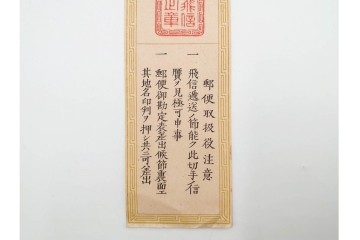 郵便取扱役注意
一 飛信逓送ノ節能ク此切手ノ信
贋ヲ見極可申事
一 郵便御勘定表差出候節裏面エ
其地名印判ヲ押シ共ニ可差出